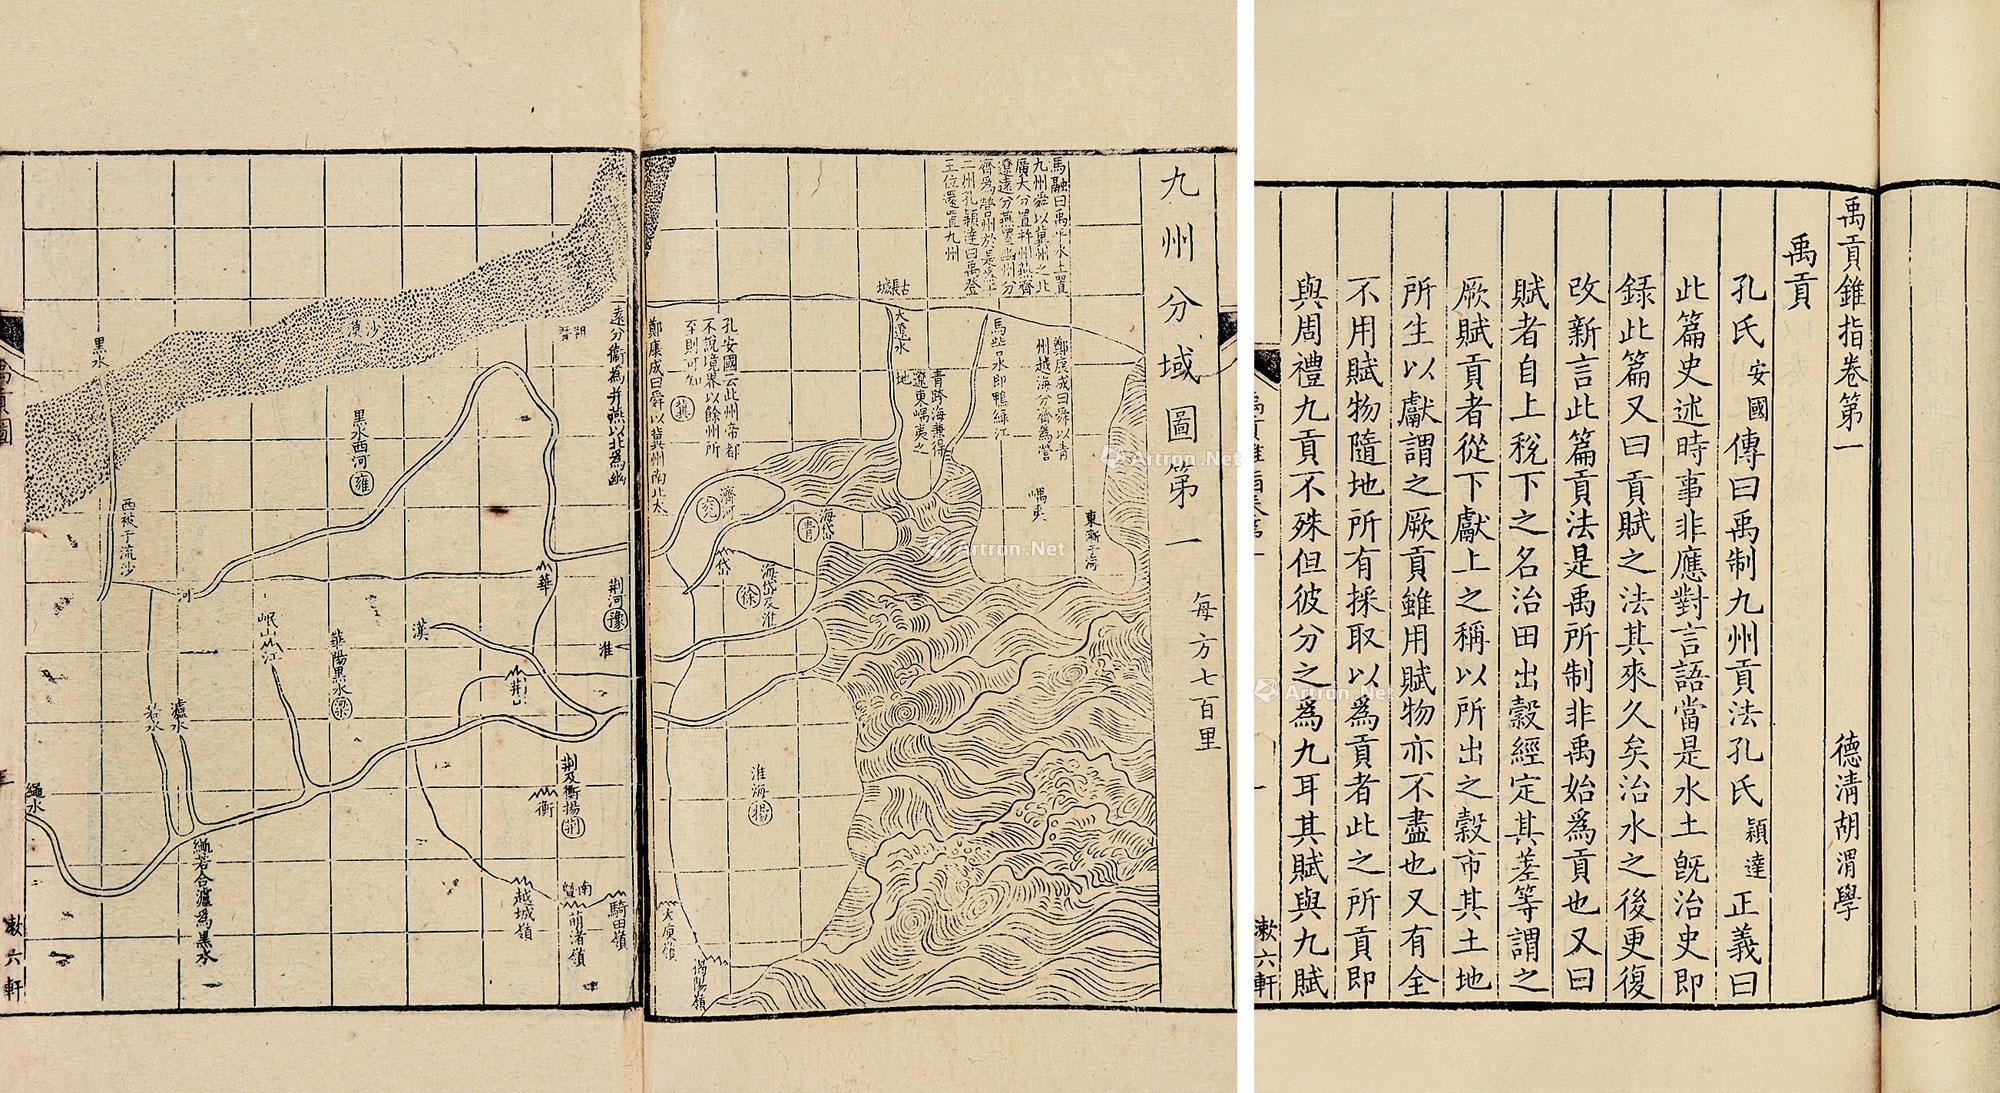 禹貢錐指卷第一
德清胡渭學
禹貢
孔氏安國傳曰禹制九州貢法孔氏穎達正義曰
此篇史述時事非應對言語當是水土既治史即
錄此篇又曰貢賦之法其來久矣治水之後更復
改新言此篇貢法是禹所制非禹始為貢也又曰
賦者自上稅下之名治田出穀經定其差等謂之
厥賦貢者從下獻上之稱以所出之穀市其土地
所生以獻謂之厥貢雖用賦物亦不盡也又有全
不用賦物隨地所有採取以為貢者此之所貢即
與周禮九貢不殊但彼分之為九耳其賦與九賦
漱六軒
九州分域圖第一
每方七百里
馬融曰禹平水土置
九州舜以冀州之北
廣大分置并州燕齊
遼遠分燕置幽州分
齊為營州於是為十
二州孔穎達曰禹登
王位還置九州
古長城
大遼水
馬訾水即鴨綠江
鄭康成曰舜以青
州越海分齊為營
青跨海兼得
遼東嵎夷之
地
嵎夷
東漸于海
孔安國云此州帝都
不說境界以餘州所
至則可知
冀
鄭康成曰舜以冀州南北太
遠分衞為并燕以北為幽
濟河
兖
海岱
青
岱
海岱及淮
徐
淮海
揚
大庾嶺
揭陽嶺
沙漠
黑水
黑水西河
雍
西被于流沙
河
華
荊河
豫
淮
漢
岷山
江
華陽黑水
梁
荊山
瀘水
若水
繩水
繩若合瀘為黑水
荊及衡揚
荊
衡
南
越城嶺
萌渚嶺
騎田嶺
漱六軒
Artron.Net
Artron.Net
Artron.Net